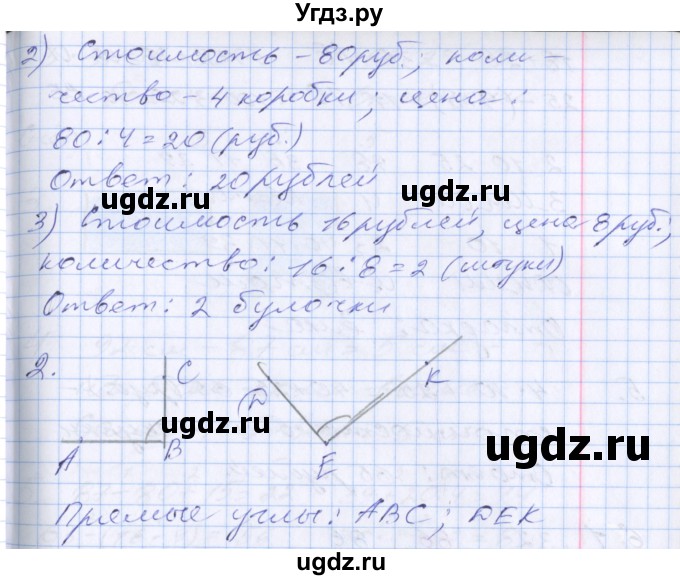 Угдз.ру
2) Стоимость – 80 руб.; коли –
чество – 4 коробки; цена:
80 : 4 = 20 (руб.)
Ответ: 20 рублей
ugdz.ru ugdz.ru
3) Стоимость 16 рублей, цена 8 руб.;
количество: 16 : 8 = 2 (штуки)
Ответ: 2 булочки
2.
C D K
ugdz.ru ugdz.ru
A B E
Прямые углы: ABC; DEK
ugdz.ru
ugdz.ru